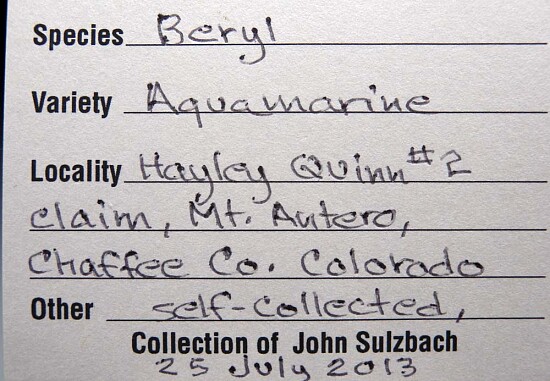 Species Beryl
Variety Aquamarine
Locality Hayley Quinn #2
claim, Mt. Antero,
Chaffee Co. Colorado
Other self-collected,
Collection of John Sulzbach
25 July 2013